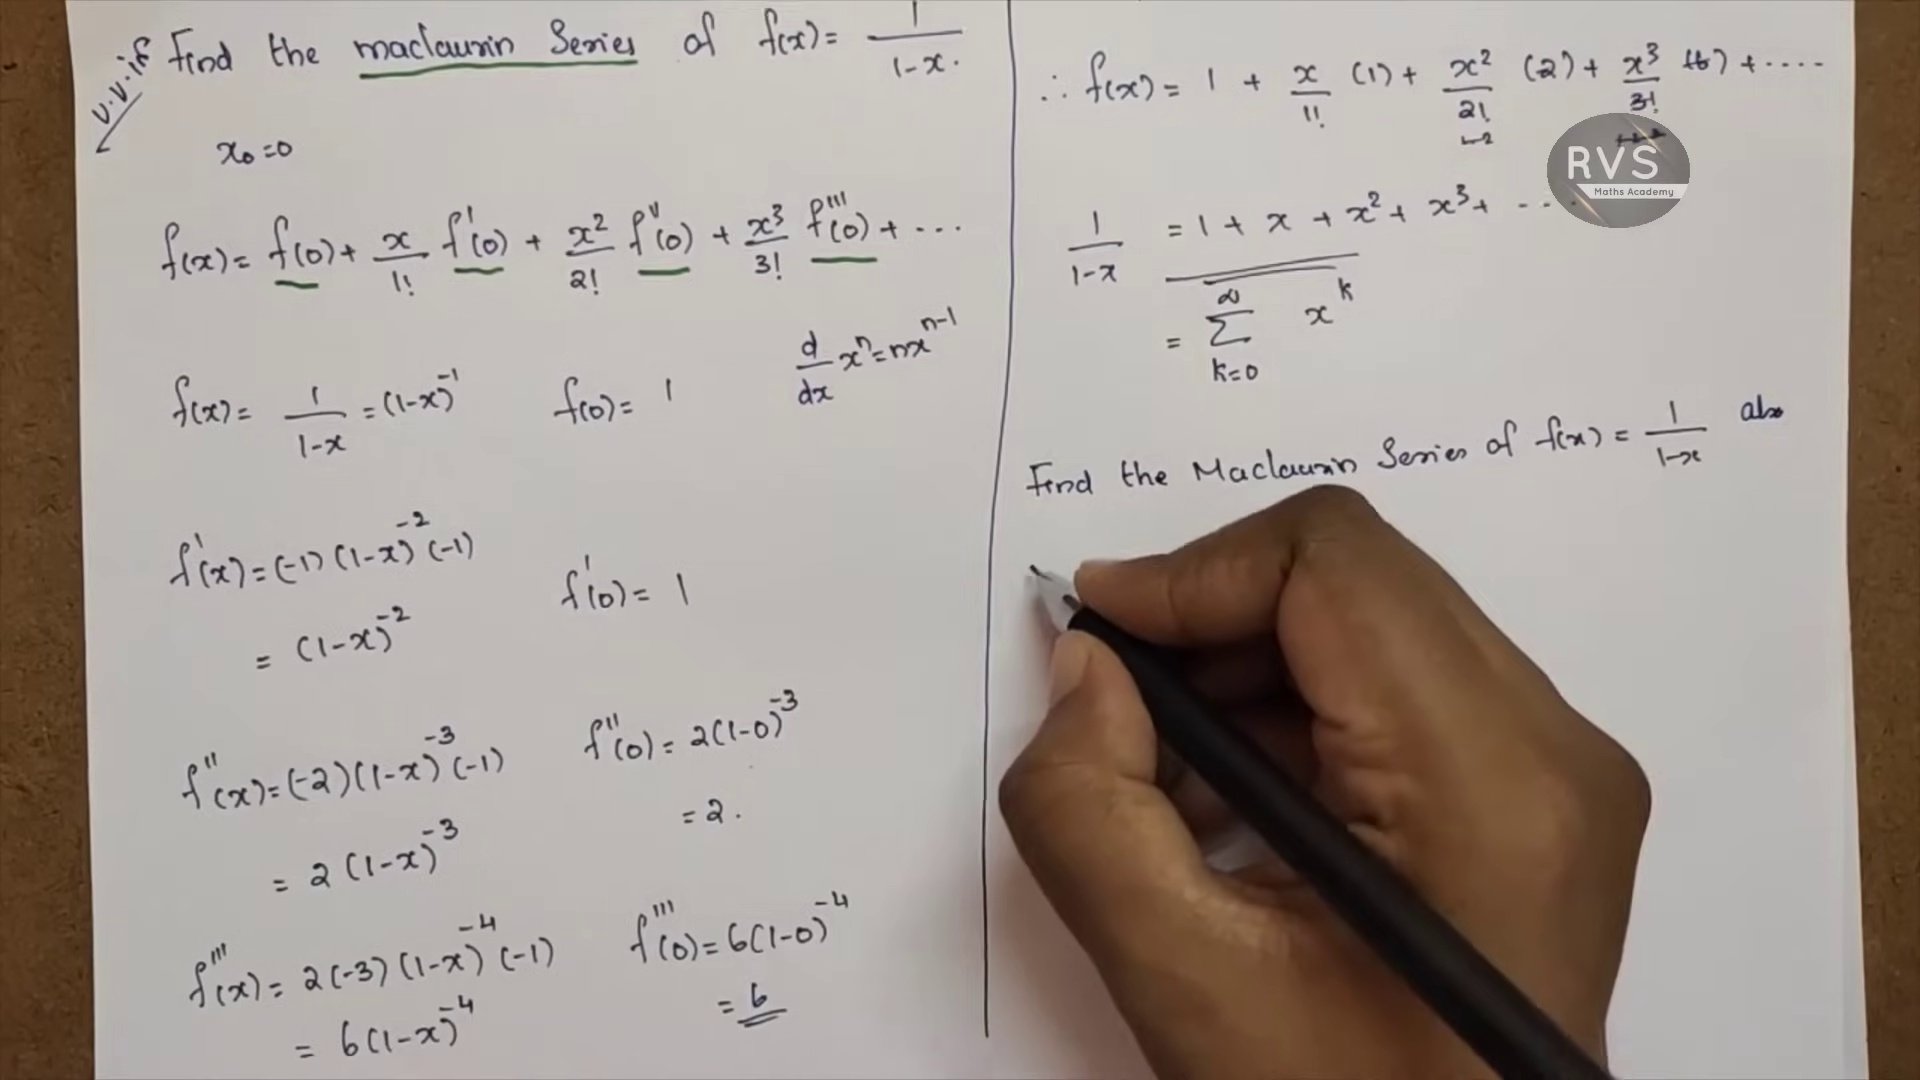 v.v.if
Find the maclaurin Series of f(x) = 1/(1-x).
x₀ = 0
f(x) = f(0) + x/1! f'(0) + x²/2! f''(0) + x³/3! f'''(0) + ...
f(x) = 1/(1-x) = (1-x)⁻¹ f(0) = 1 d/dx xⁿ = nxⁿ⁻¹
f'(x) = (-1)(1-x)⁻²(-1)
= (1-x)⁻² f'(0) = 1
f''(x) = (-2)(1-x)⁻³(-1) f''(0) = 2(1-0)⁻³
= 2(1-x)⁻³ = 2.
f'''(x) = 2(-3)(1-x)⁻⁴(-1) f'''(0) = 6(1-0)⁻⁴
= 6(1-x)⁻⁴ = 6
∴ f(x) = 1 + x/1! (1) + x²/2! (2) + x³/3! (6) + ....
1/(1-x) = 1 + x + x² + x³ + ...
= ∑_{k=0}^∞ x^k
Find the Maclaurin Series of f(x) = 1/(1-x) also
RVS
Maths Academy